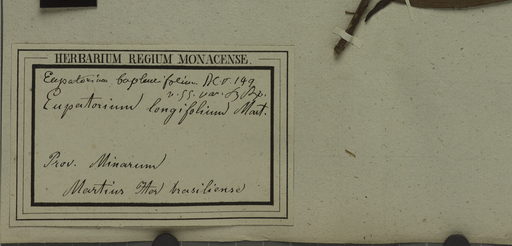 HERBARIUM REGIUM MONACENSE.
Eupatorium bupleurifolium DC. V. 149
v. ss. var. β Bp.
Eupatorium longifolium Mart.
Prov. Minarum
Martius Iter brasiliense